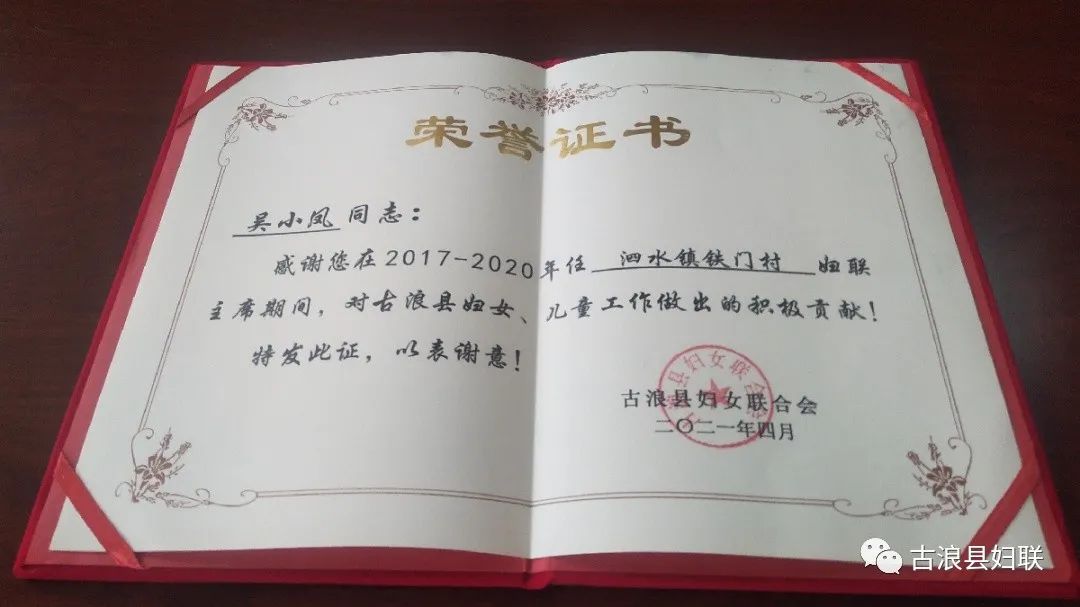 荣誉证书
吴小凤同志：
感谢您在2017-2020年任 泗水镇铁门村 妇联
主席期间，对古浪县妇女、儿童工作做出的积极贡献！
特发此证，以表谢意！
古浪县妇女联合会
古浪县妇女联合会
二〇二一年四月
古浪县妇联